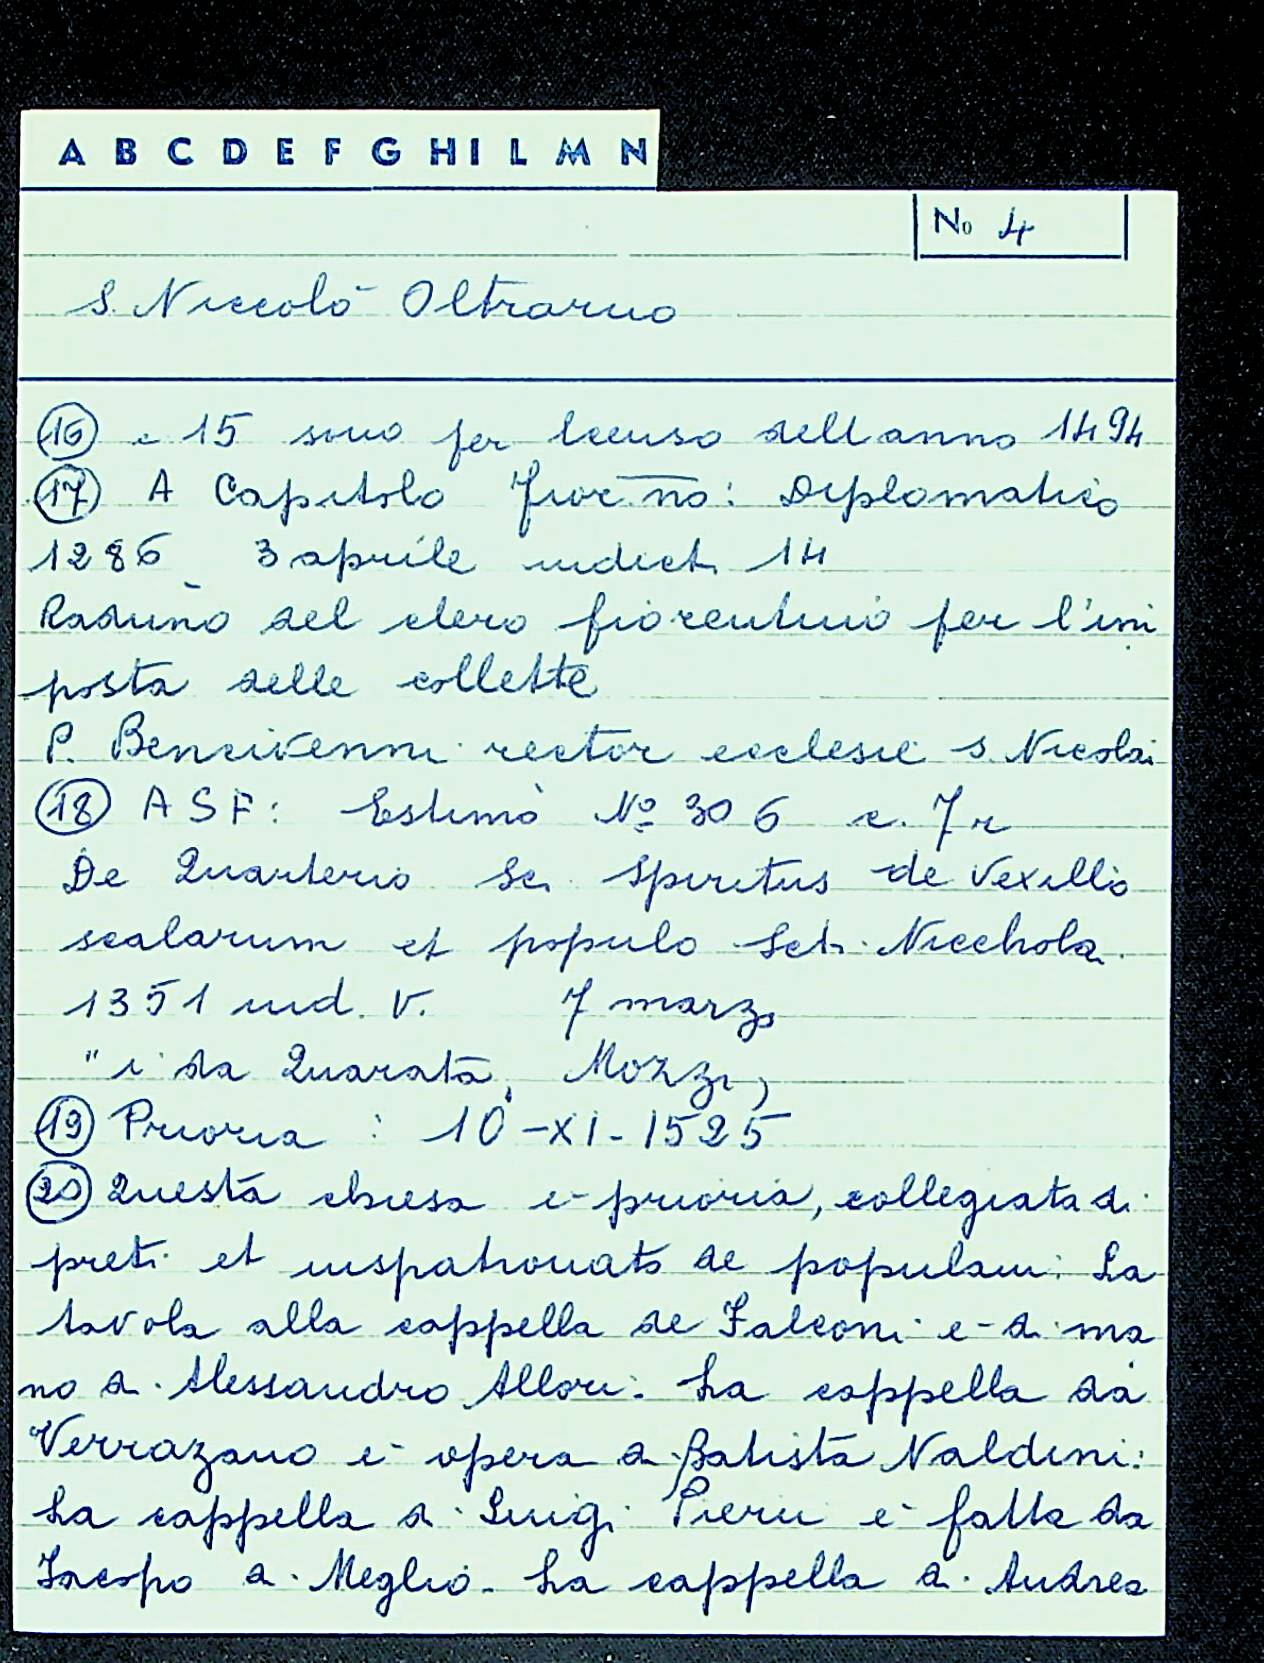 A B C D E F G H I L M N
No 4
S. Niccolò Oltrarno
16 e 15 sono per censo dell anno 1494
17 A Capitolo Fior no: Diplomatico
1286 3 aprile indict. 14
Raduno del clero fiorentino per l'im
posta delle collette
P. Bencivenni rector ecclesie s. Nicolai
18 ASF: Estimo No 306 c. 7r
De Quarterio Sci Spiritus de Vexillo
scalarum et populo Scti Nicchola
1351 ind. V. 7 marzo
" i da Quarata, Mozzi,
19 Prioria : 10-XI-1525
20 Questa chiesa è prioria, collegiata di
preti et iuspatronato de popolani. La
tavola alla cappella de Falconi è di ma
no di Alessandro Allori. La cappella da
Verrazano è opera di Batista Naldini:
La cappella di Luigi Pierii è fatta da
Iacopo di Meglio. La cappella di Andrea